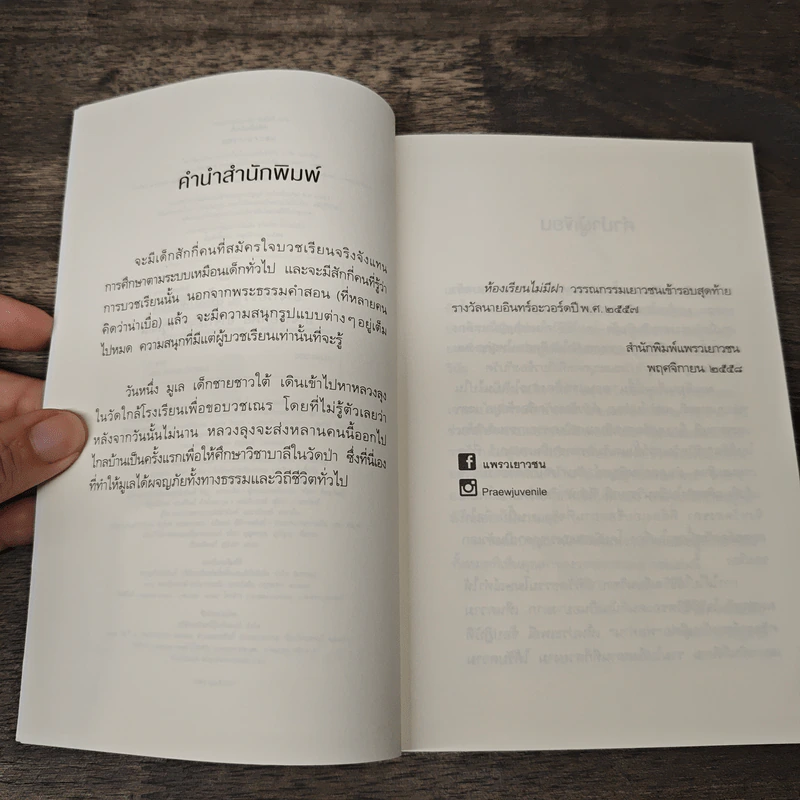 คำนำสำนักพิมพ์
จะมีเด็กสักกี่คนที่สมัครใจบวชเรียนจริงจังแทน
การศึกษาตามระบบเหมือนเด็กทั่วไป และจะมีสักกี่คนที่รู้ว่า
การบวชเรียนนั้น นอกจากพระธรรมคำสอน (ที่หลายคน
คิดว่าน่าเบื่อ) แล้ว จะมีความสนุกรูปแบบต่างๆ อยู่เต็ม
ไปหมด ความสนุกที่มีแต่ผู้บวชเรียนเท่านั้นที่จะรู้
วันหนึ่ง มูเล เด็กชายชาวใต้ เดินเข้าไปหาหลวงลุง
ในวัดใกล้โรงเรียนเพื่อขอบวชเณร โดยที่ไม่รู้ตัวเลยว่า
หลังจากวันนั้นไม่นาน หลวงลุงจะส่งหลานคนนี้ออกไป
ไกลบ้านเป็นครั้งแรกเพื่อให้ศึกษาวิชาบาลีในวัดป่า ซึ่งที่นี่เอง
ที่ทำให้มูเลได้ผจญภัยทั้งทางธรรมและวิถีชีวิตทั่วไป
ห้องเรียนไม่มีฝา วรรณกรรมเยาวชนเข้ารอบสุดท้าย
รางวัลนายอินทร์อะวอร์ดปี พ.ศ. ๒๕๕๗
สำนักพิมพ์แพรวเยาวชน
พฤศจิกายน ๒๕๕๘
แพรวเยาวชน
Praewjuvenile